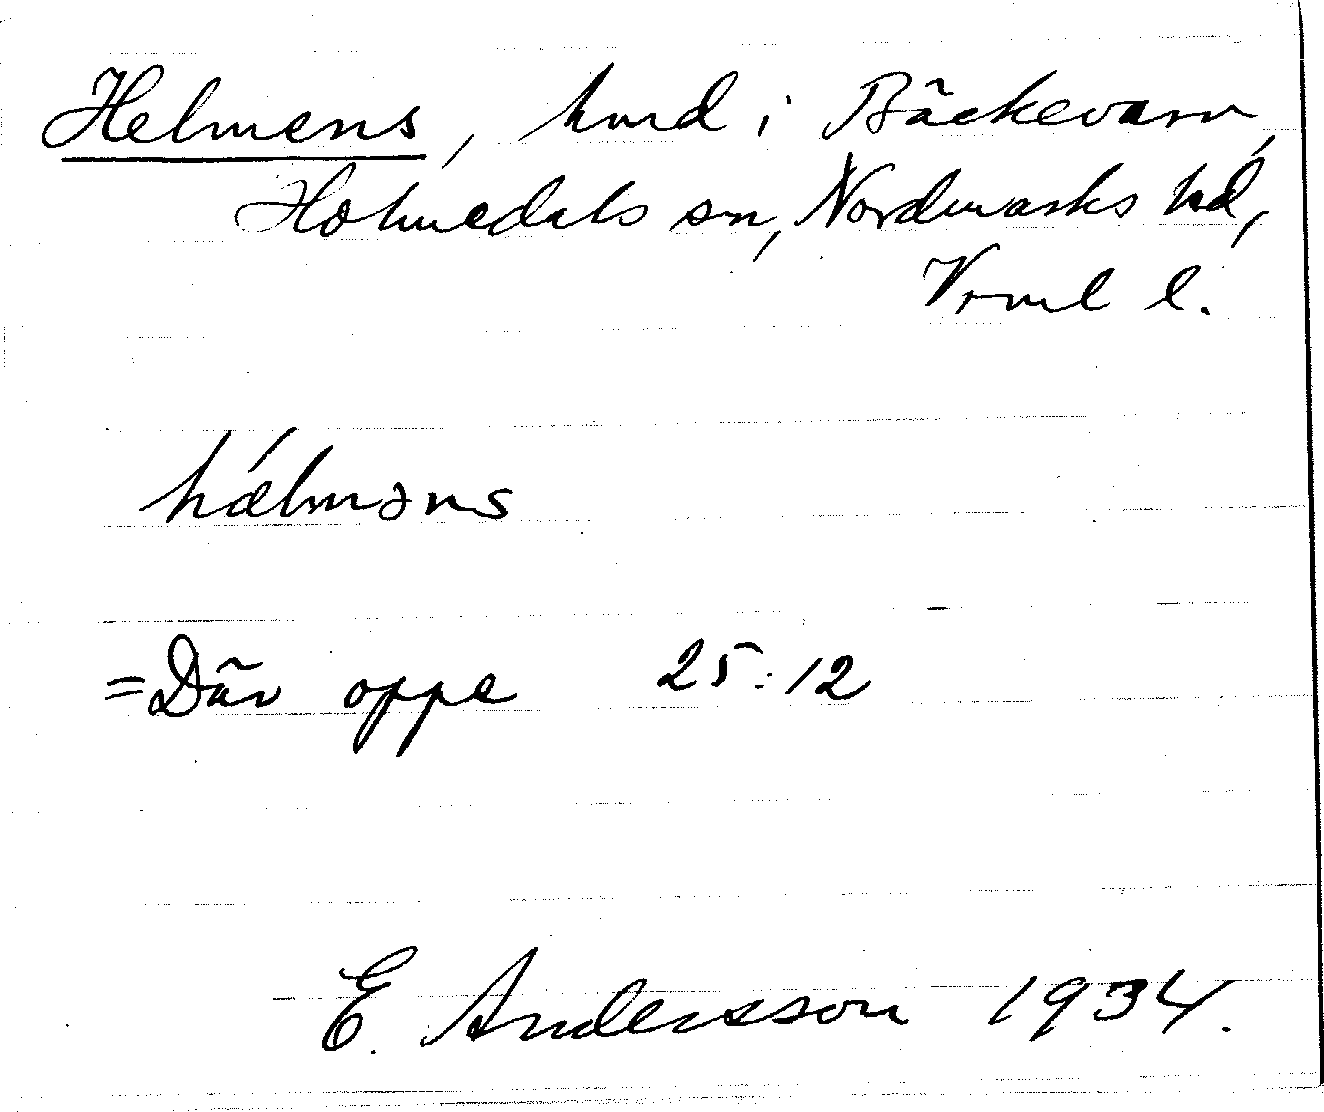 Helmens, hmd i Bäckevarv,
Holmedals sn, Nordmarks hd,
Vrml l.
hælməns
=Där oppe 25:12
E. Andersson 1934.